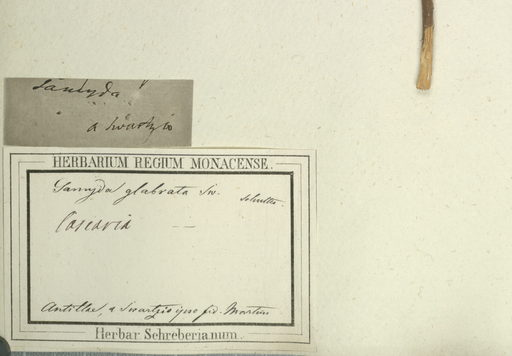 Samyda
a Swartzio
HERBARIUM REGIUM MONACENSE.
Samyda glabrata Sw.
Casearia —
Antillae, a Swartzio ipso fid. Martius
Herbar Schreberianum.